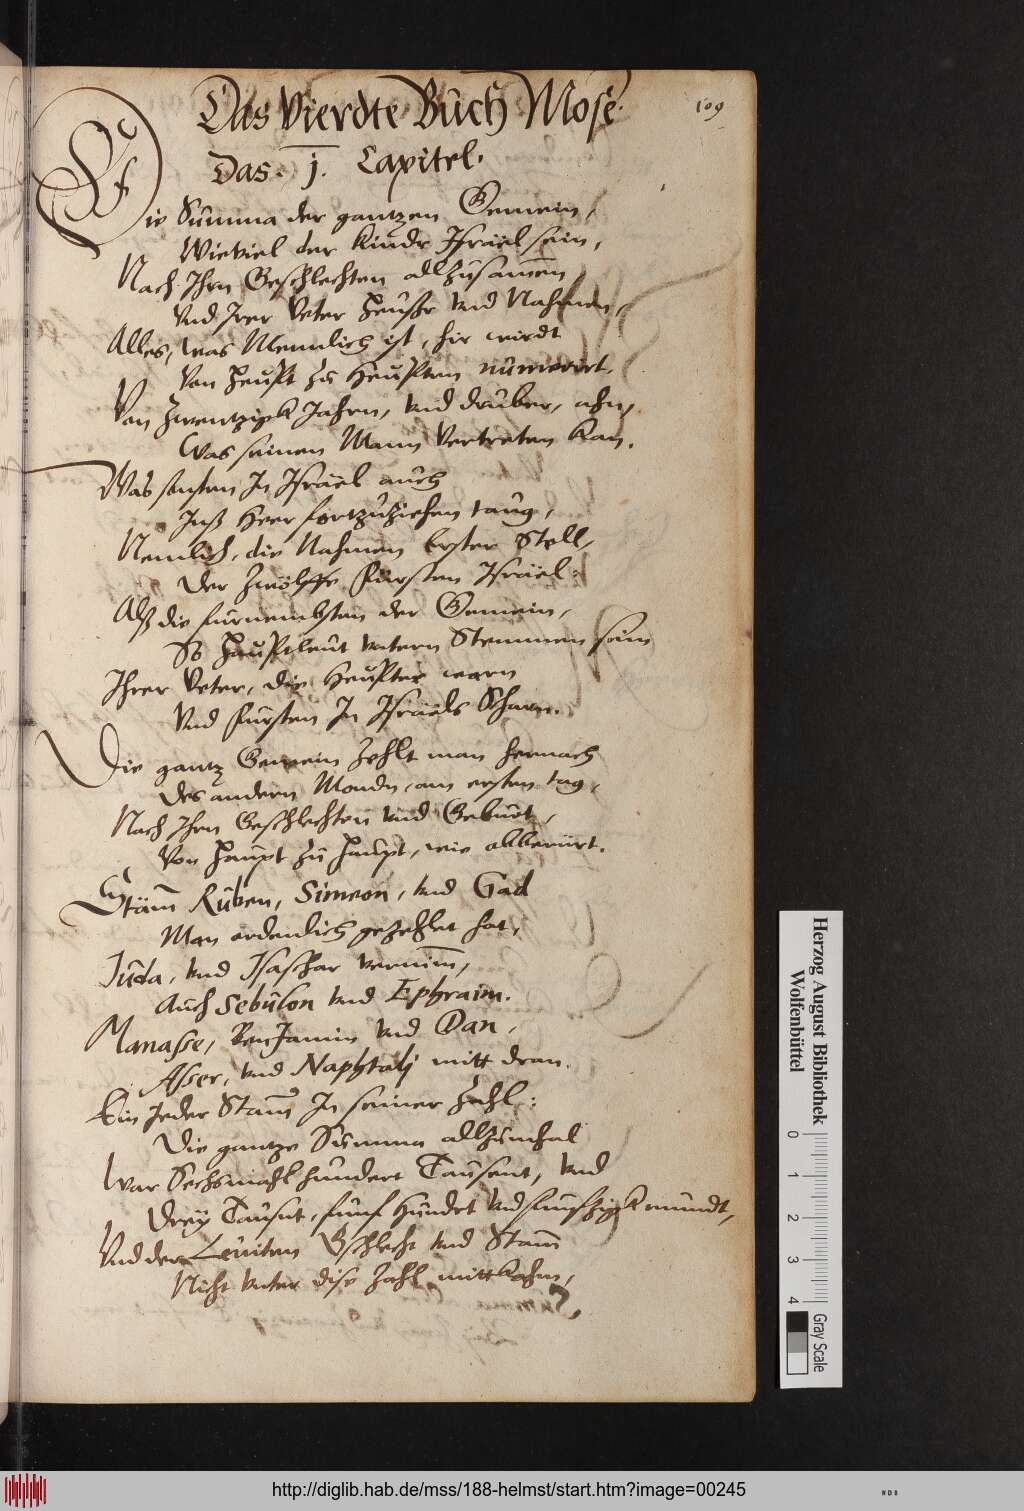 109
Das Vierdte Buch Mose.
Das. j. Capitel.
Die Summa der gantzen Gemein,
Wieviel der Kinder Israel sein,
Nach Ihrn Geschlechten allzusamen,
Vnd Irer Veter Heuser vnd Nahmen,
Alles, was Mennlich ist, hir wirdt
Von Heupt zu Heupten numerirt.
Von Zwentzigk Jahrn, vnd druber, ahn,
Was seinen Mann Vertreten kan.
Was sonsten In Israel auch
Inß Heer fortzuziehen taug,
Nemlich, die Nahmen Erster Stell,
Der Zwölffe Fursten Israel:
Alß die furnembsten der Gemein,
So Hauptleut vntern Stemmen sein
Ihrer Veter, die Heupter warn
Vnd Fursten In Israels Scharn.
Die gantz Gemein Zehlt man hernach
Des andern Mondn, am ersten tag,
Nach Ihrn Geschlechten vnd Geburt,
Von Haupt zu Haupt, wie allberürt.
Stäm Ruben, Simeon, vnd Gad
Man ordenlich gezehlet hat,
Juda, vnd Isaschar vernim,
Auch Sebulon vnd Ephraim.
Manasse, BenJamin vnd Dan,
Asser, vnd Naphtalj mitt dran.
Ein Jeder Stam In seiner Zahl:
Die gantze Summa allzumhal
War Sechsmahl hundert Tausent, vnd
Drey Tausnt, funf Hundet vnd funfzigk mundt,
Vnd der Leuiten Gschlecht vnd Stam
Nicht vnter dise Zahl mitt kahm,
Herzog August Bibliothek
Wolfenbüttel
0 1 2 3 4
Gray Scale
http://diglib.hab.de/mss/188-helmst/start.htm?image=00245